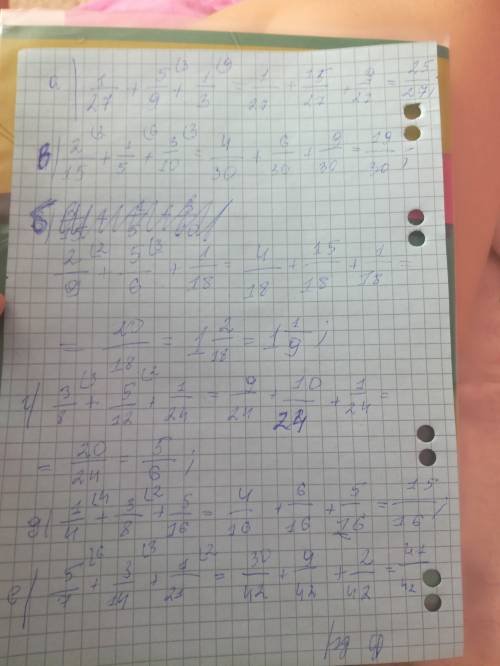 а) 1/27 + 5/9 (3 + 1/3 (9 = 1/27 + 15/27 + 9/27 = 25/27;
в) 2/15 (2 + 1/5 (6 + 3/10 (3 = 4/30 + 6/30 + 9/30 = 19/30;
б)
2/9 (2 + 5/6 (3 + 1/18 = 4/18 + 15/18 + 1/18 =
= 20/18 = 1 2/18 = 1 1/9;
г) 3/8 (3 + 5/12 (2 + 1/24 = 9/24 + 10/24 + 1/24 =
= 20/24 = 5/6;
д) 1/4 (4 + 3/8 (2 + 5/16 = 4/16 + 6/16 + 5/16 = 15/16;
е) 5/7 (6 + 3/14 (3 + 1/21 (2 = 30/42 + 9/42 + 2/42 = 41/42